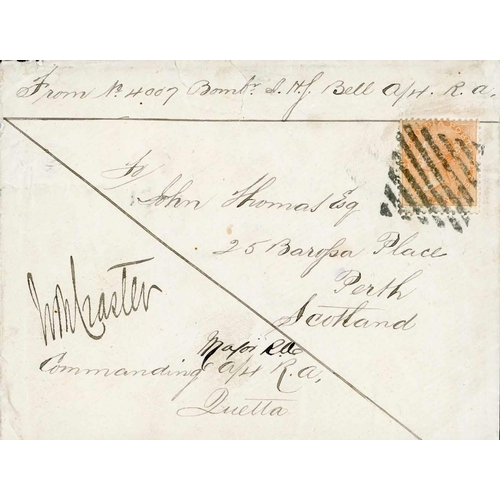 From No. 4007 Bombr. I. H. J. Bell A/4. R. A.
To
John Thomas Esq
25 Barossa Place
Perth
Scotland
Craster
Major R.A.
Commanding A/4 R. A.
Quetta